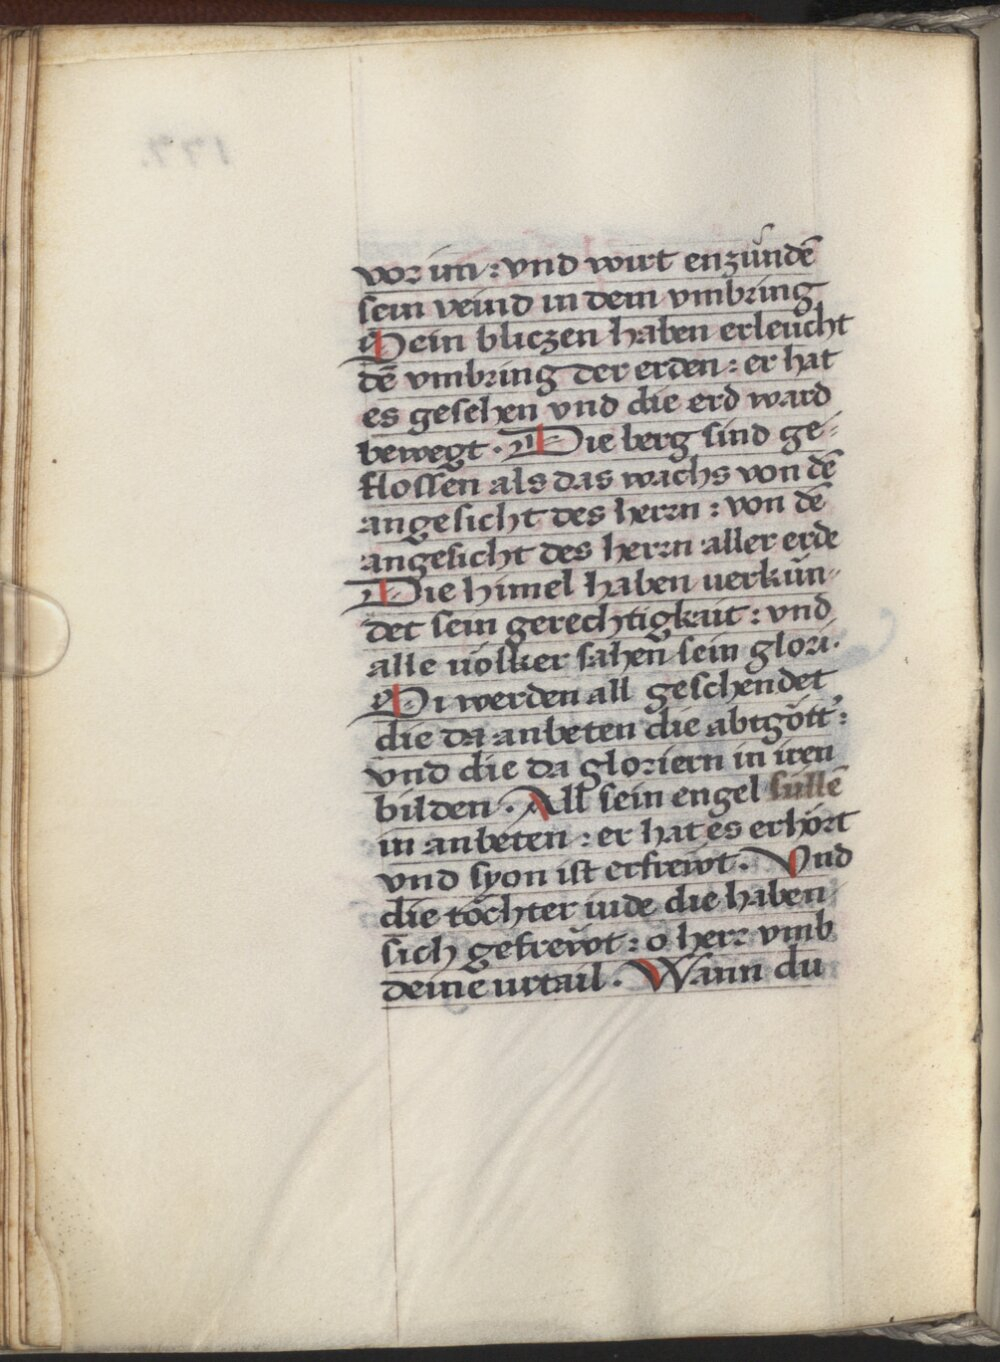 vor im : vnd wirt enzündē
sein veind in dem vmbring
Sein bliczen haben erleücht
dē vmbring der erden : er hat
es gesehen vnd die erd ward
bewegt . Die berg sind ge⸗
flossen als das wachs von dē
angesicht des herrn : von dē
angesicht des herrn aller erde
Die himel haben uerkün⸗
det sein gerechtigkait : vnd
alle uölker sahen sein glori .
Si werden all geschendet
die da anbeten die abtgött :
vnd die da gloriern in iren
bilden . All sein engel süllē
in anbeten : er hat es erhört
vnd syon ist erfreẅt . Vnd
die töchter iude die haben
sich gefreẅt : o herr vmb
deine urtail . Wann du